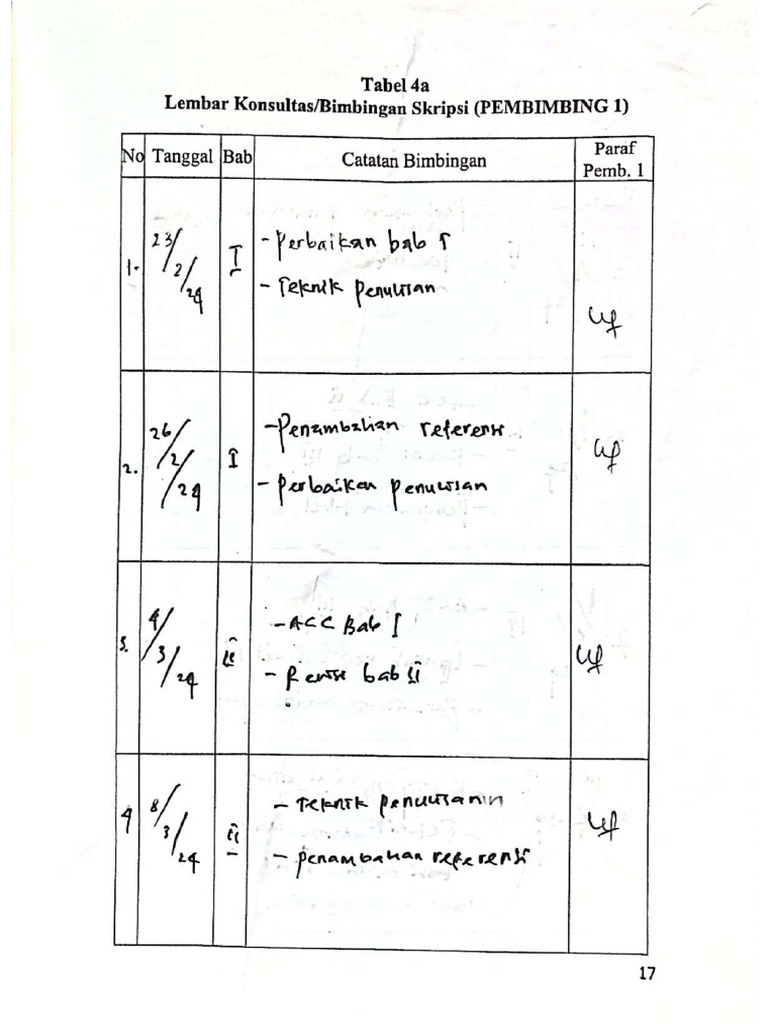 Tabel 4a
Lembar Konsultas/Bimbingan Skripsi (PEMBIMBING 1)
No Tanggal Bab Catatan Bimbingan Paraf Pemb. 1
1. 23/2/24 I - Perbaikan bab I
- Teknik Penulisan
2. 26/2/24 I - Penambahan referensi
- perbaikan penulisan
3. 4/3/24 II - ACC Bab I
- Revisi bab II
4 8/3/24 II - Teknik penulisannin
- penambahan referensi
17